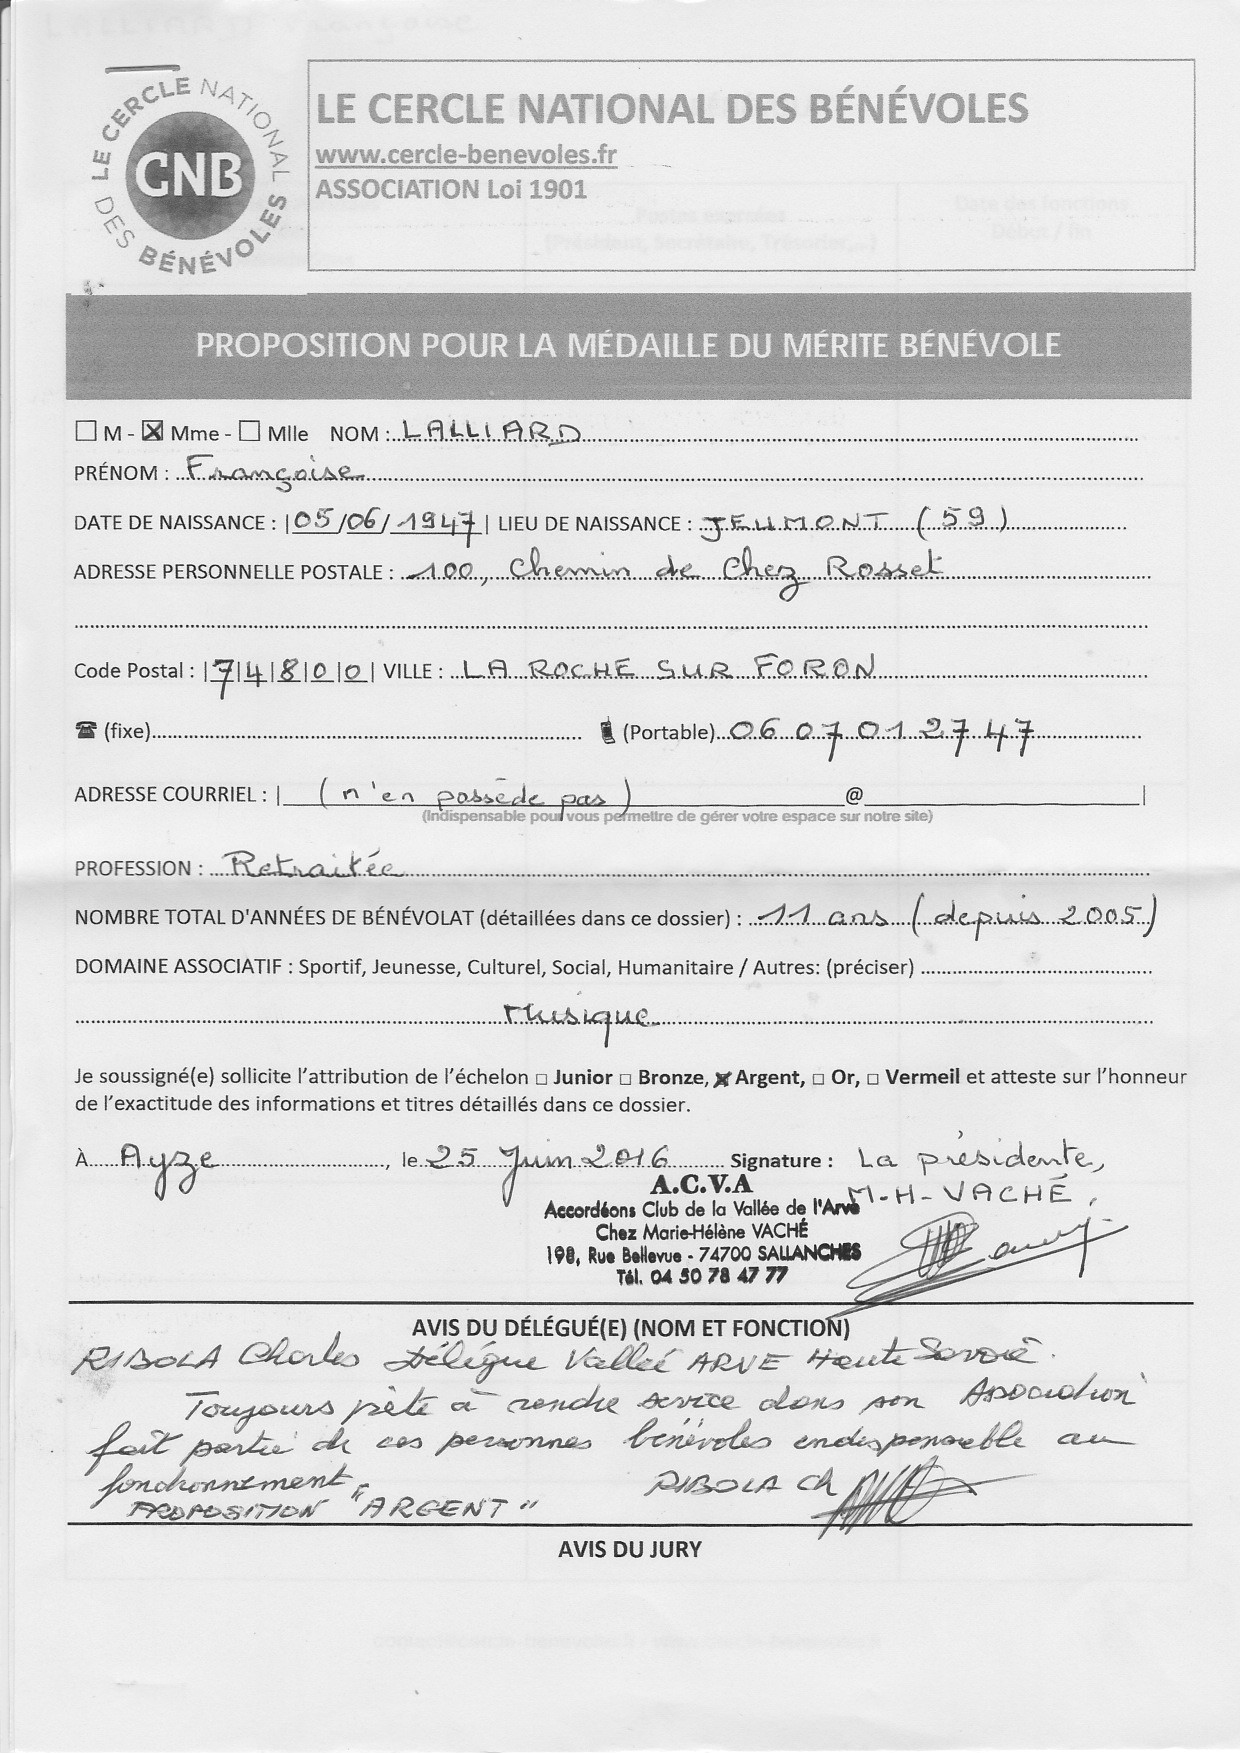 LE CERCLE NATIONAL DES BÉNÉVOLES
CNB
LE CERCLE NATIONAL DES BÉNÉVOLES
www.cercle-benevoles.fr
ASSOCIATION Loi 1901
PROPOSITION POUR LA MÉDAILLE DU MÉRITE BÉNÉVOLE
☐ M - ☒ Mme - ☐ Mlle NOM : LALLIARD
PRÉNOM : Françoise
DATE DE NAISSANCE : |05/06/1947| LIEU DE NAISSANCE : JEUMONT (59)
ADRESSE PERSONNELLE POSTALE : 100, Chemin de Chez Rosset
Code Postal : |7|4|8|0|0| VILLE : LA ROCHE SUR FORON
☎ (fixe) (Portable) 06 07 01 27 47
ADRESSE COURRIEL : | (n'en possède pas) @ |
(Indispensable pour vous permettre de gérer votre espace sur notre site)
PROFESSION : Retraitée
NOMBRE TOTAL D'ANNÉES DE BÉNÉVOLAT (détaillées dans ce dossier) : 11 ans (depuis 2005)
DOMAINE ASSOCIATIF : Sportif, Jeunesse, Culturel, Social, Humanitaire / Autres: (préciser)
Musique
Je soussigné(e) sollicite l'attribution de l'échelon ☐ Junior ☐ Bronze, ☒ Argent, ☐ Or, ☐ Vermeil et atteste sur l'honneur
de l'exactitude des informations et titres détaillés dans ce dossier.
À Ayze, le 25 Juin 2016 Signature : La présidente,
M-H-VACHÉ,
A.C.V.A
Accordéons Club de la Vallée de l'Arve
Chez Marie-Hélène VACHÉ
198, Rue Bellevue - 74700 SALLANCHES
Tél. 04 50 78 47 77
AVIS DU DÉLÉGUÉ(E) (NOM ET FONCTION)
RIBOLA Charles Délégue Valleé ARVE Haute Savoie.
Toujours prête à rendre service dans son Association
fait partie de ces personnes bénévoles endispensable au
fonctionnement,
RIBOLA Ch
PROPOSITION "ARGENT"
AVIS DU JURY